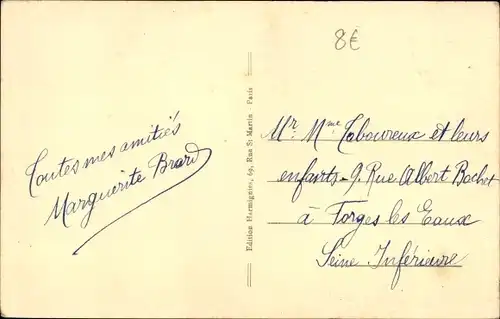 8€
Toutes mes amitiés
Marguerite Brard
Edition Harmignies, 69, Rue St Martin Paris
Mr. Mme Taboureux et leurs
enfants - 9. Rue Albert Bochet
à Forges les Eaux
Seine Inférieure